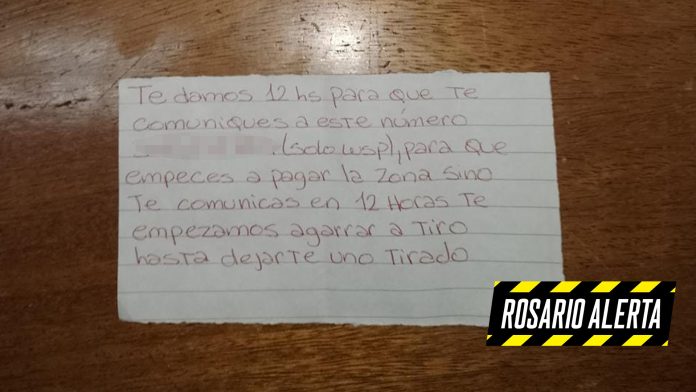 Te damos 12 hs para que te
comuniques a este número
(solo wsp), para que
empeces a pagar la zona sino
te comunicas en 12 Horas te
empezamos agarrar a tiro
hasta dejarte uno tirado
ROSARIO ALERTA